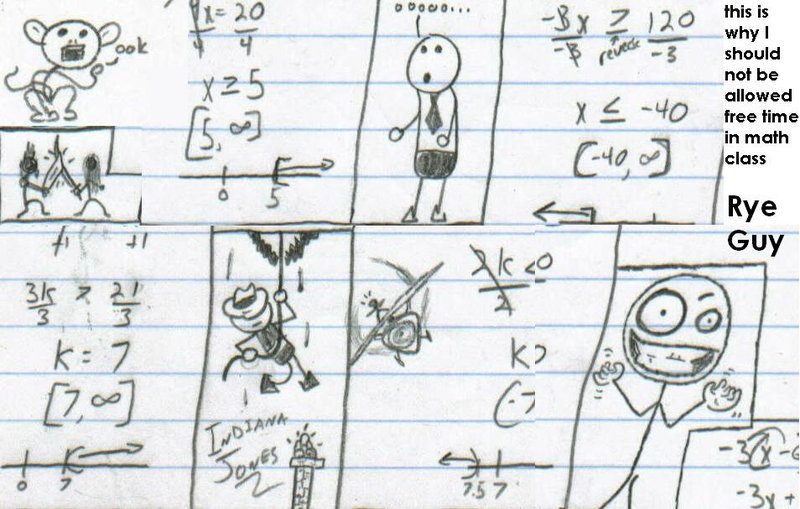 ook
4x = 20
4 4
x ≥ 5
[5, ∞]
0 5
-3x ≥ 120
-3 -3
reverse
x ≤ -40
[-40, ∞]
this is
why I
should
not be
allowed
free time
in math
class
Rye
Guy
+1 +1
3k 21
3 3
k = 7
[7, ∞]
0 7
INDIANA
JONES
2k <0
2
k>
(-7
7.5 7
-3(x -6
-3x +